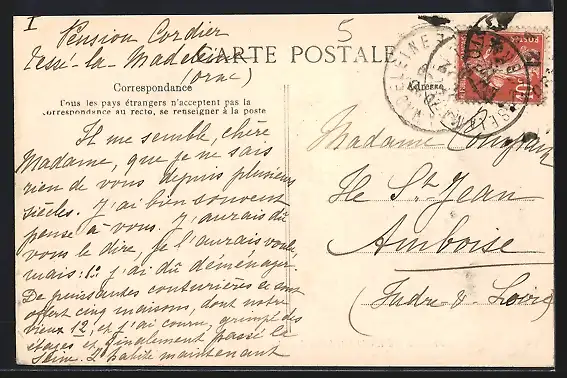 I
5
Pension Cordier
Tessé-la-Madeleine
(Orne)
CARTE POSTALE
Correspondance
Tous les pays étrangers n'acceptent pas la
correspondance au recto, se renseigner à la poste
Adresse
Il me semble, chère
Madame, que je ne sais
rien de vous depuis plusieurs
siècles. J'ai bien souvent
pensé à vous. J'aurais dû
vous le dire, je l'aurais voulu,
mais: 1º j'ai dû déménager.
De puissantes couturières
offert cinq maisons, dont notre
vieux 12, et j'ai couru, grimpé des
étages et finalement passé la
Seine. J'habite maintenant
Madame
Ile St Jean
Amboise
(Indre & Loire)
10